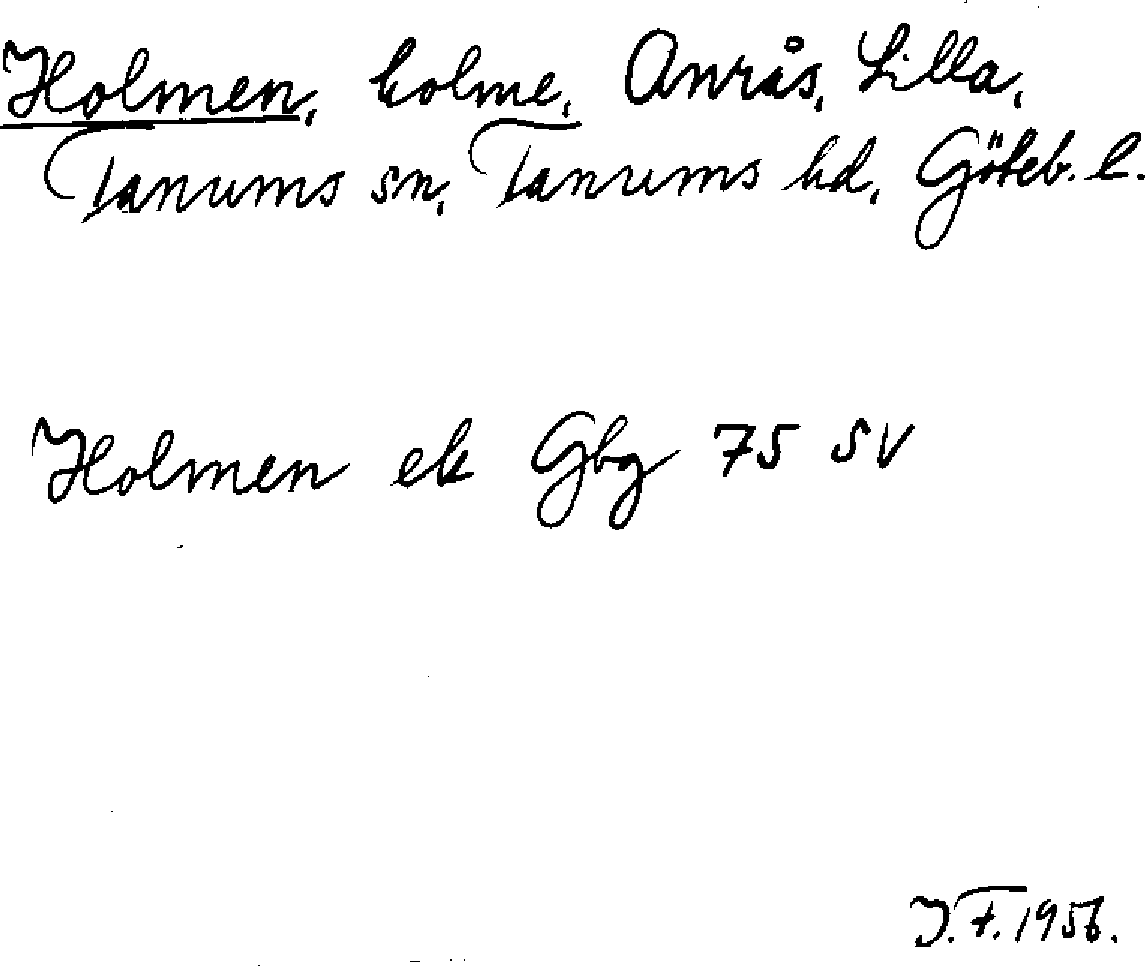 Holmen, holme, Anrås, Lilla,
Tanums sn, Tanums hd, Göteb. l.
Holmen ek Gbg 75 SV
J.F. 1956.